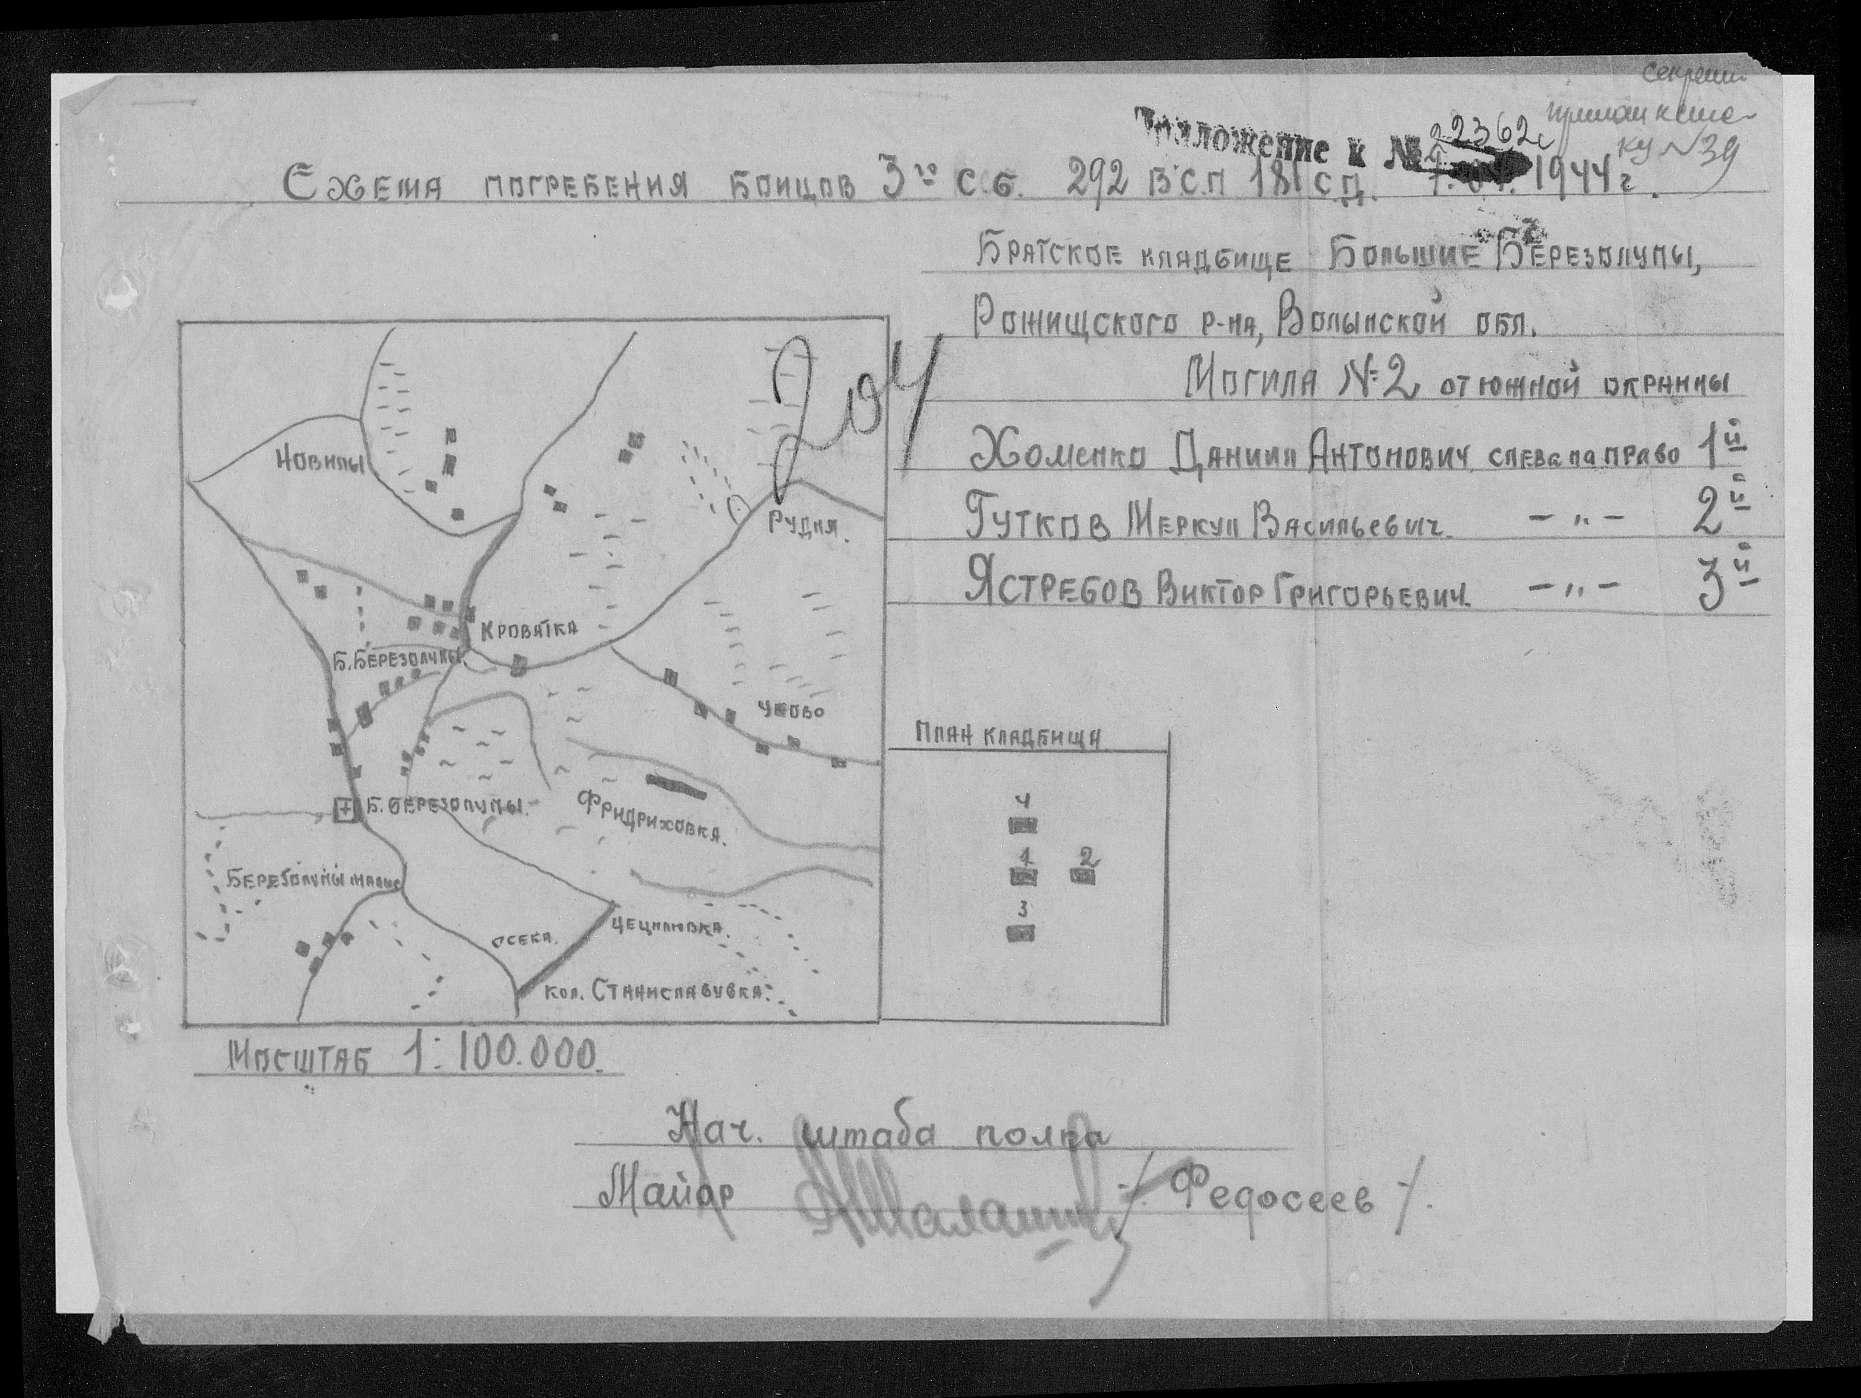 Приложение к № 22362с
Схема погребения бойцов 3го с.б. 292 в сп 181 сд. 1944 г.
ку №39
Братское кладбище Большие Березолупы,
Рожищского р-на, Волынской обл.
Могила №2 от южной окраины
Хоменко Даниил Антонович слева на право 1й
Гутков Меркул Васильевич. —"— 2й
Ястребов Виктор Григорьевич. —"— 3й
204
Новины
Рудня.
Кроватка
Б. Березолупы.
Ужово
Б. Березолупы.
Фридриховка.
Березолупы малые
Осека.
Цециловка.
кол. Станиславувка.
План кладбища
4
1 2
3
Мосштаб 1:100.000.
Нач. штаба полка
Майор /Федосеев/.